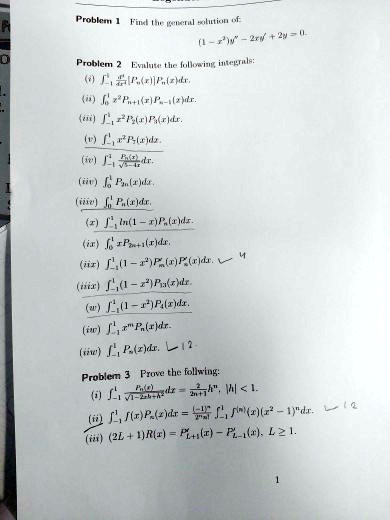 Problem 1 Find the general solution of:
(1 − x²)y″ − 2xy′ + 2y = 0.
Problem 2 Evalute the following integrals:
(i) ∫₋₁¹ [Pₙ(x)]Pₙ(x)dx.
(ii) ∫₀¹ x²Pₙ₊₁(x)Pₙ₋₁(x)dx.
(iii) ∫₋₁¹ x²P₂(x)P₃(x)dx.
(v) ∫₋₁¹ x²P₇(x)dx.
(iv) ∫₋₁¹ Pₙ(x)/√(5−4x) dx.
(iiv) ∫₀¹ P₂ₙ(x)dx.
(iiiv) ∫₀¹ Pₙ(x)dx.
(x) ∫₋₁¹ ln(1 − x)Pₙ(x)dx.
(ix) ∫₀¹ xP₂ₙ₊₁(x)dx.
(iix) ∫₋₁¹ (1 − x²)P′ₘ(x)P′ₙ(x)dx.
(iiix) ∫₋₁¹ (1 − x²)P₁₃(x)dx.
(w) ∫₋₁¹ (1 − x²)P₄(x)dx.
(iw) ∫₋₁¹ xᵐPₙ(x)dx.
(iiw) ∫₋₁¹ Pₙ(x)dx. 12
Problem 3 Prove the follwing:
(i) ∫₋₁¹ Pₙ(x)/√(1−2xh+h²) dx = 2/(2n+1) hⁿ, |h| < 1.
(ii) ∫₋₁¹ f(x)Pₙ(x)dx = (−1)ⁿ/(2ⁿn!) ∫₋₁¹ f⁽ⁿ⁾(x)(x² − 1)ⁿdx. 12
(iii) (2L + 1)R(x) = P′L₊₁(x) − P′L₋₁(x), L ≥ 1.
1